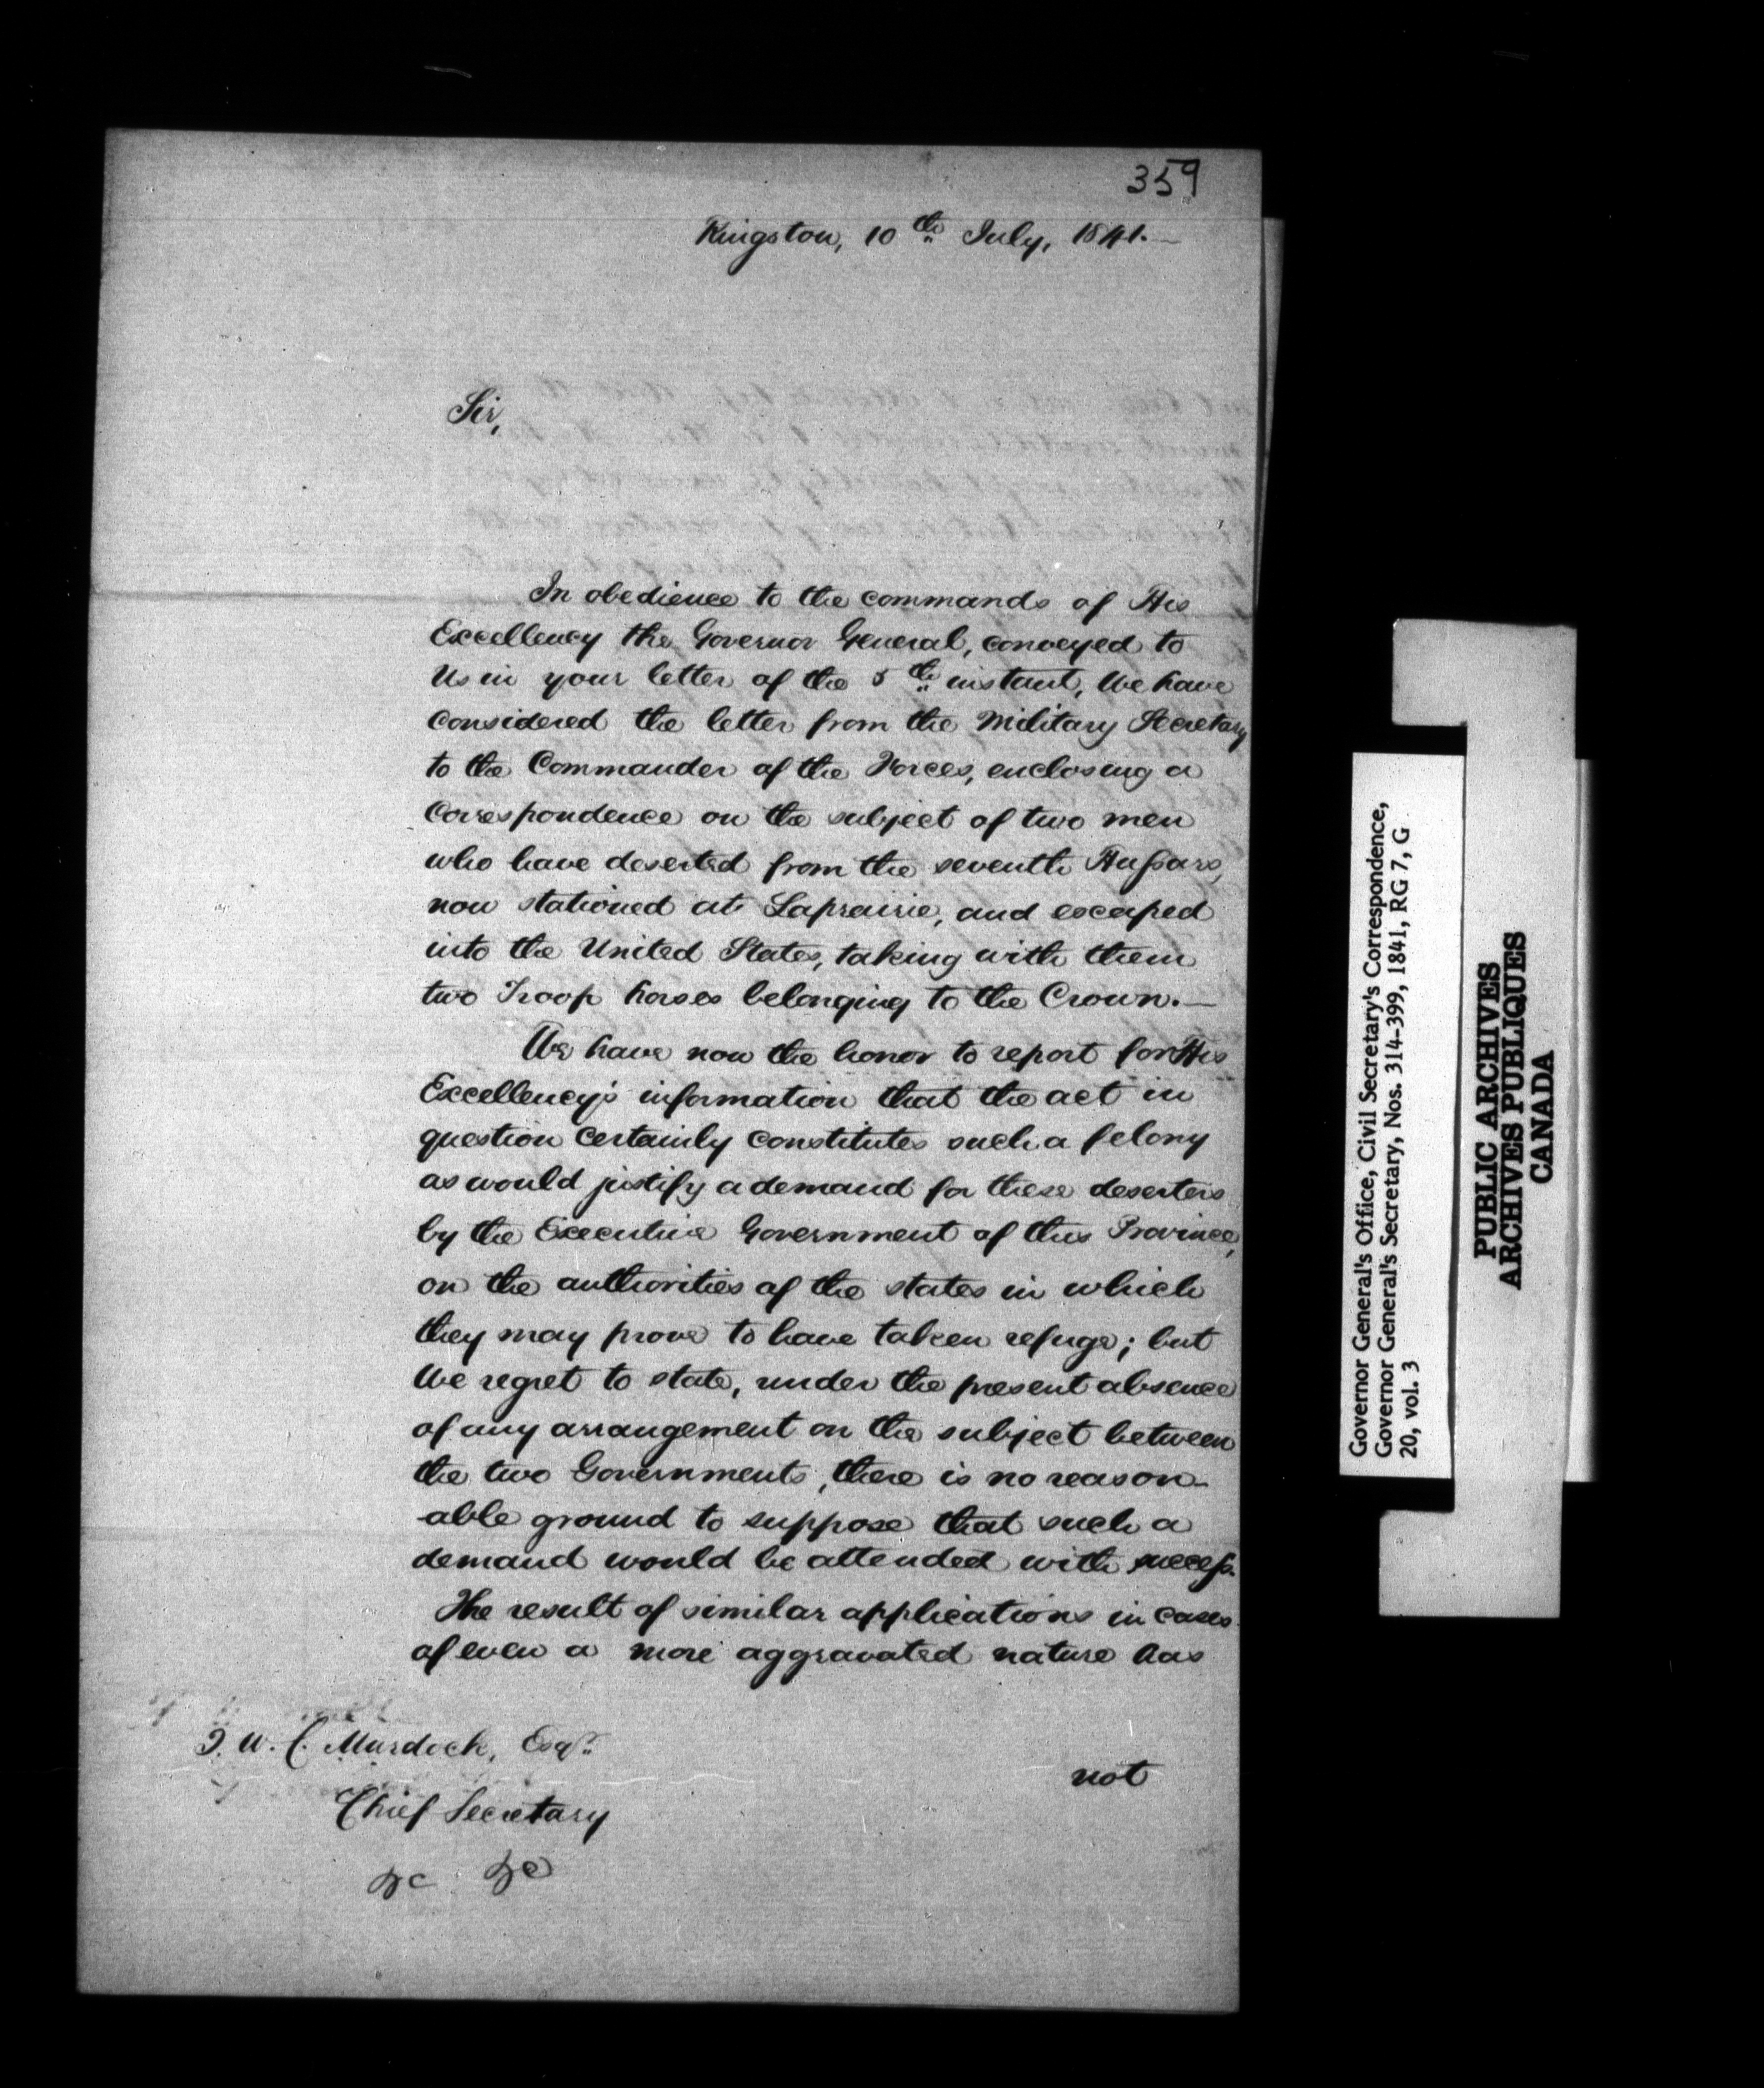 359
Kingston, 10th July, 1841.—
Sir,
In obedience to the commands of His
Excellency the Governor General, conveyed to
Us in your letter of the 5th instant, We have
considered the letter from the Military Secretary
to the Commander of the Forces, enclosing a
Correspondence on the subject of two men
who have deserted from the seventh Hussars,
now stationed at Laprairie, and escaped
into the United States, taking with them
two Troop horses belonging to the Crown.—
We have now the honor to report for His
Excellency's information that the act in
question certainly constitutes such a felony
as would justify a demand for these deserters
by the Executive Government of this Province,
on the authorities of the states in which
they may prove to have taken refuge; but
We regret to state, under the present absence
of any arrangement on the subject between
the two Governments, there is no reason-
-able ground to suppose that such a
demand would be attended with success.
The result of similar applications in cases
of even a more aggravated nature has
not
T. W. C. Murdoch, Esqr.
Chief Secretary
&c &c
Governor General's Office, Civil Secretary's Correspondence,
Governor General's Secretary, Nos. 314-399, 1841, RG 7, G
20, vol. 3
PUBLIC ARCHIVES
ARCHIVES PUBLIQUES
CANADA